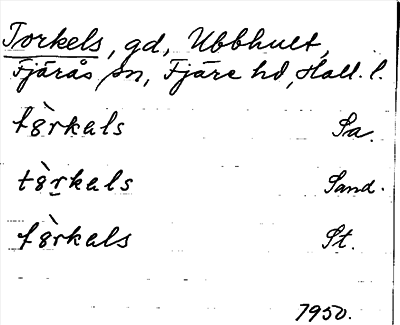 Torkels, gd, Ubbhult,
Fjärås sn, Fjäre hd, Hall. l.
tòrkals Sa.
tòrkals Sand.
tòrkals St.
1950.